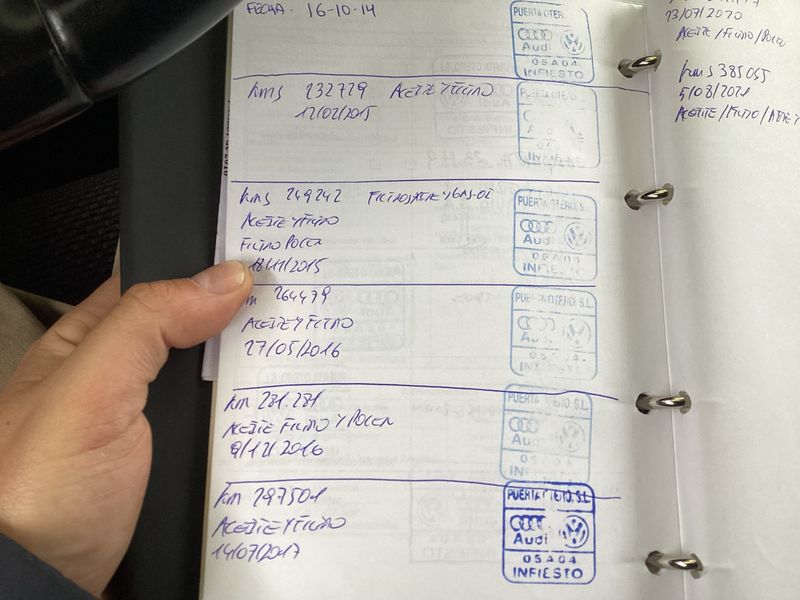 FECHA. 16-10-14
PUERTA OTERO
Audi
05A04
INFIESTO
kms 232729 ACEITE Y FILTRO
12/02/2015
kms 249242 FILTROS AIRE Y GAS-OL
ACEITE Y FILTRO
FILTRO POLEN
18/11/2015
PUERTA OTERO, S.L.
Audi
05A04
INFIESTO
km 264479
ACEITE Y FILTRO
27/05/2016
PUERTA OTERO, S.L
km 281.281
ACEITE FILTRO Y POLEN
9/12/2016
PUERTA OTERO, S.L
Audi
05A04
km 297501
ACEITE Y FILTRO
14/07/2017
PUERTA OTERO, S.L
Audi
05A04
INFIESTO
13/07/2020
ACEITE/FILTRO/POLEN
kms 385055
5/08/2021
ACEITE/FILTRO/AIRE Y